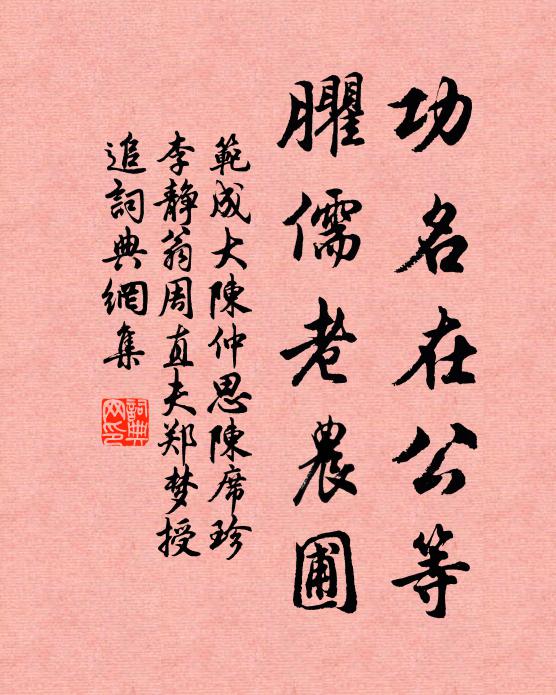 功名在公等
臞儒老農圃
範成大陳仲思陳席珍
李靜翁周直夫郑梦授
追詞典網集
詞典网印